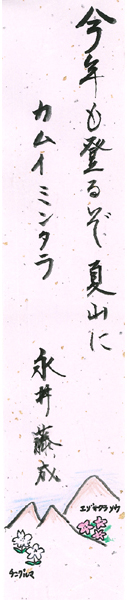 今年も登るぞ夏山に
カムイミンタラ
永井藤成
エゾサクラソウ
チングルマ